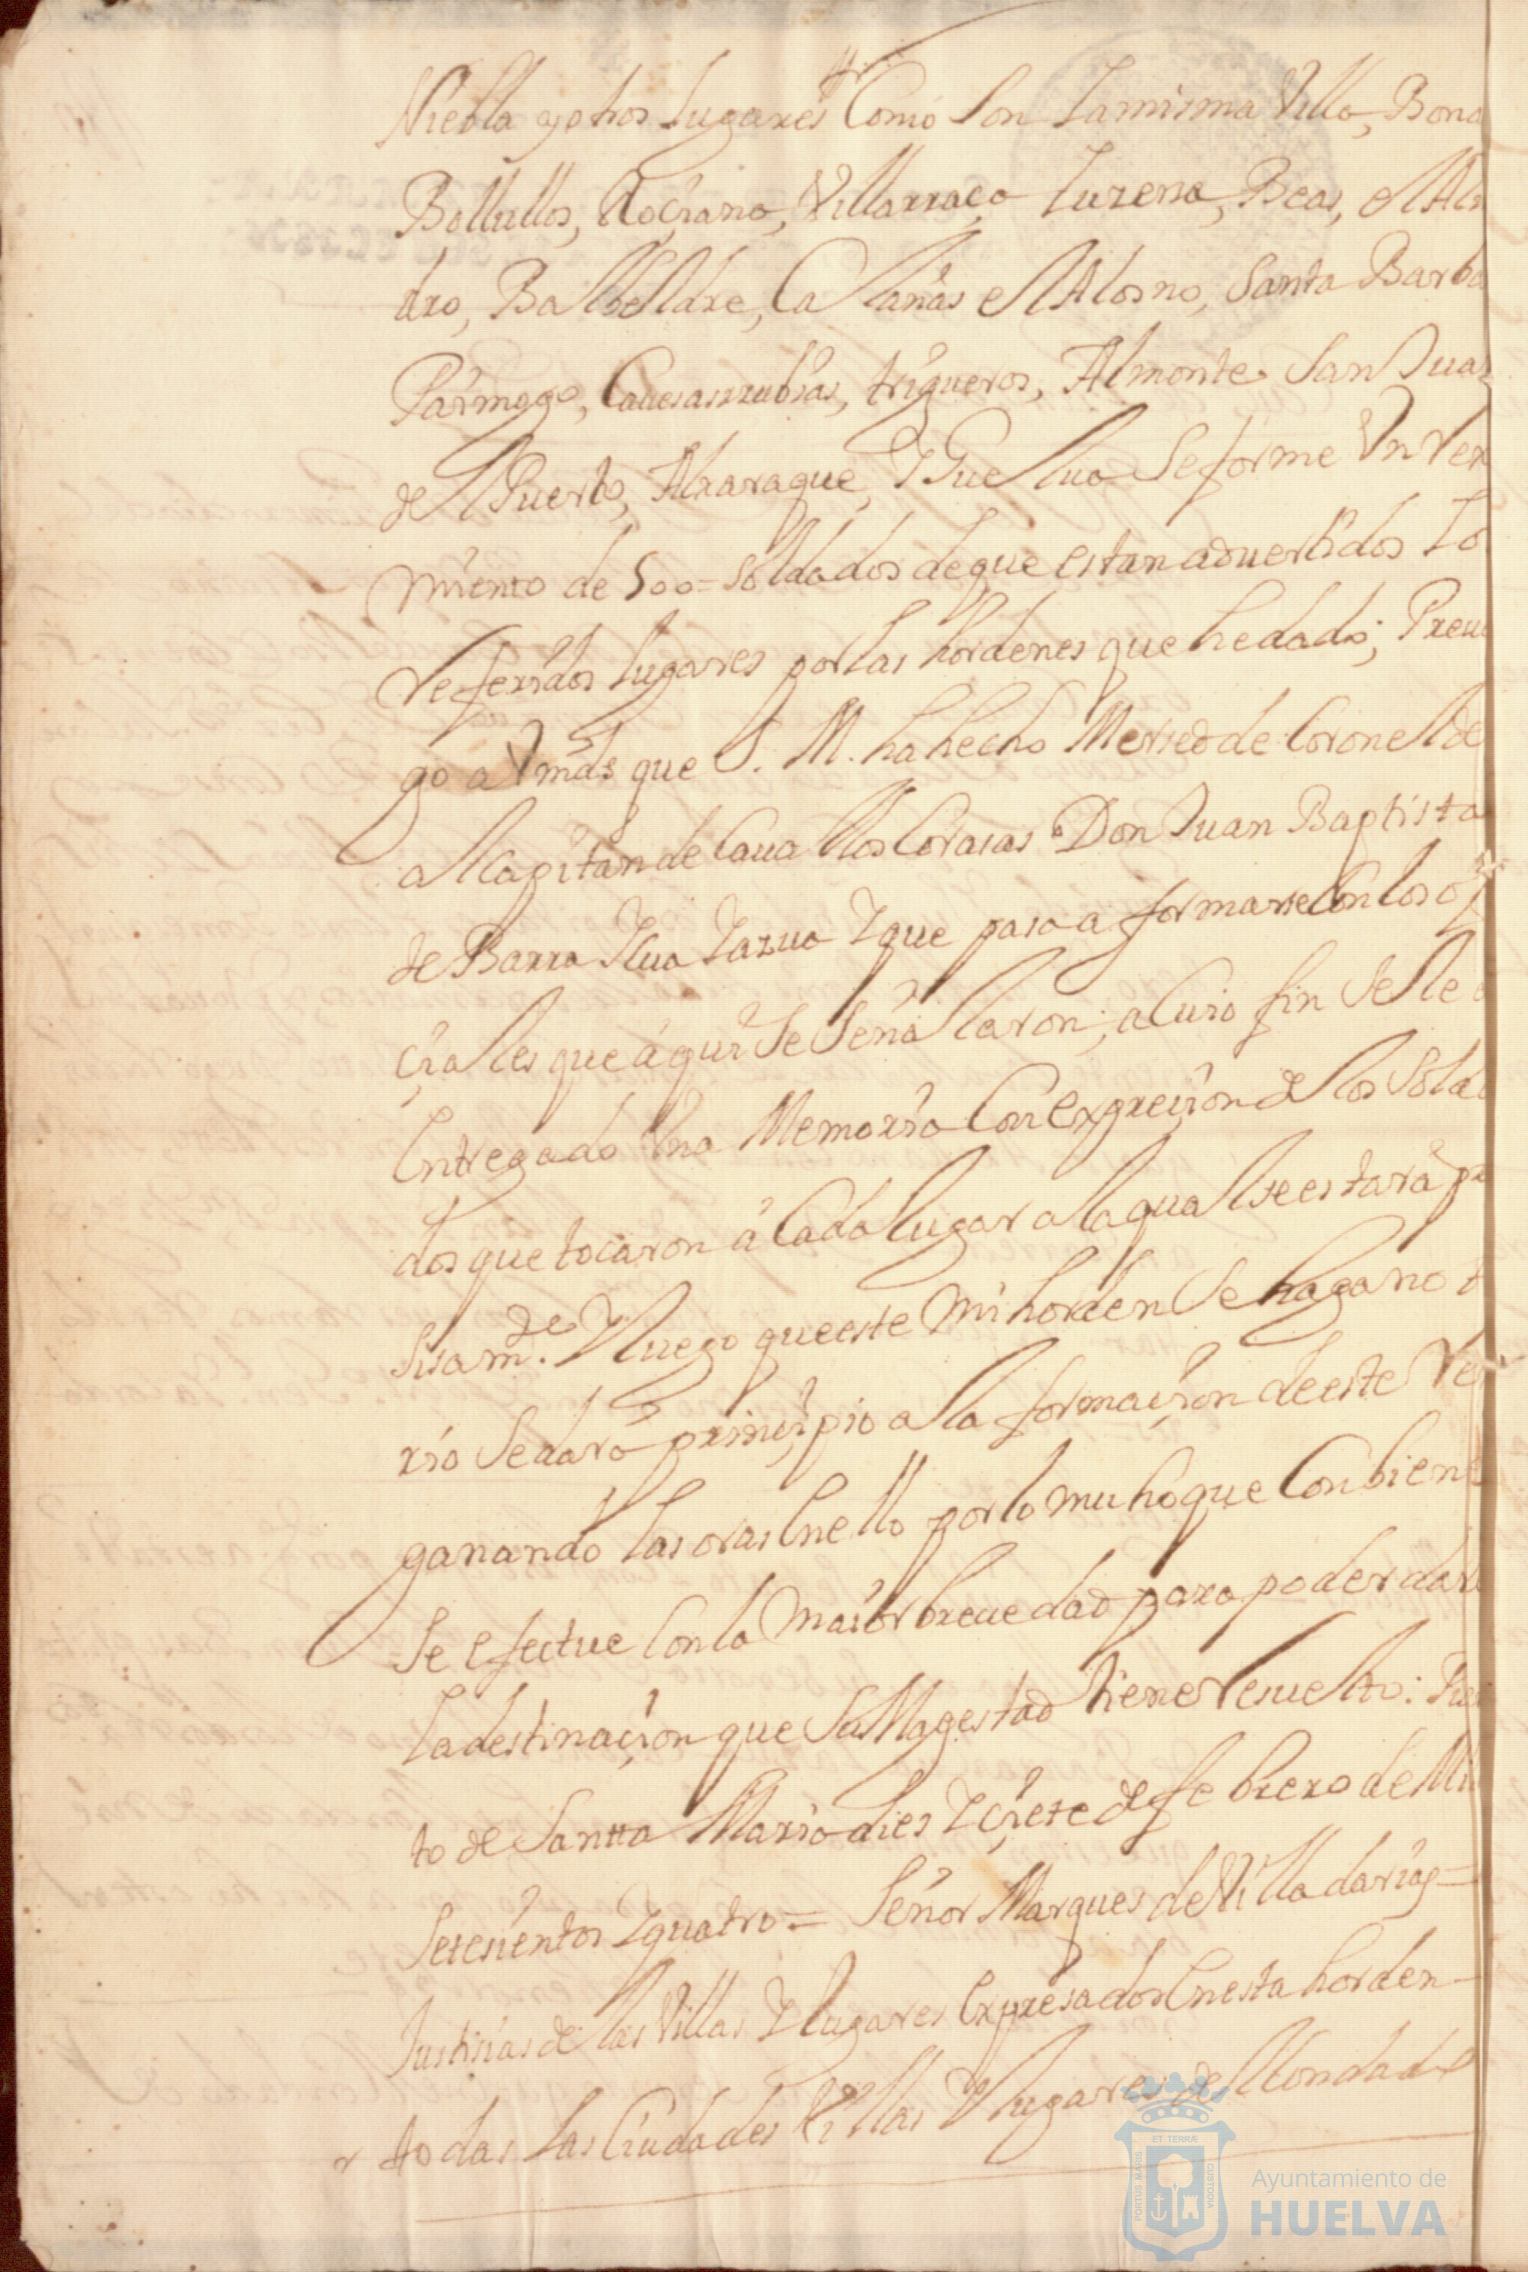 Niebla y otros lugares Como son la misma Villa, Bona
Bollullos, Roçiana, Villarrasa Luzena, Beas, el Alm
dro, Balbeldre, Calañas el Alosno, Santa Barba
Parmogo, Cauesasrrubias, trigueros, Almonte San Juan
del Puerto, Alxaraque, Y Guelua Se forme Vn Rex
miento de 500= soldados de que estan aduertidos Lo
referidos lugares por las hordenes que he dado; Preue
go a Vmds que S. M. ha hecho Mersed de Coronel de
al Capitan de Cauallos Corasas Don Juan Baptista
de Barra Ylua Y que pasa a formarse Con los ofi
çiales que aqui Se Señalaron; a Cuio fin Se le a
Entregado Vna Memoria Con Expreçion de los Solda
dos que tocaron a Cada lugar a la qual se estará pre
sisamde. Y luego que este Mi horden Se haga noto
rio Se dara prinçipio a la formaçion de este Re
ganando las oras En ello por lo muho que Conbiene
Se efectue Con la Maior breuedad para poder darle
La destinaçion que Su Magestad tiene resuelto: Puer
to de Santta Maria dies Y çiete de febrero de Mil
Setesientos Y quatro= Señor Marques de Villadarias=
Justisias de las Villas Y lugares Expresados En esta horden-
todas las Ciudades Villas Y lugares del Condado
ET TERRÆ
PORTUS MARIS
CUSTODIA
Ayuntamiento de
HUELVA